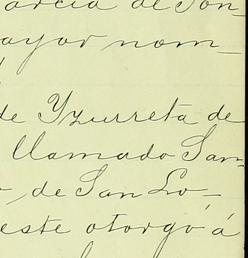 arcia de Son-
ayor nom-
de Yzurreta de
llamado San-
, de San Lo-
este otorgó á